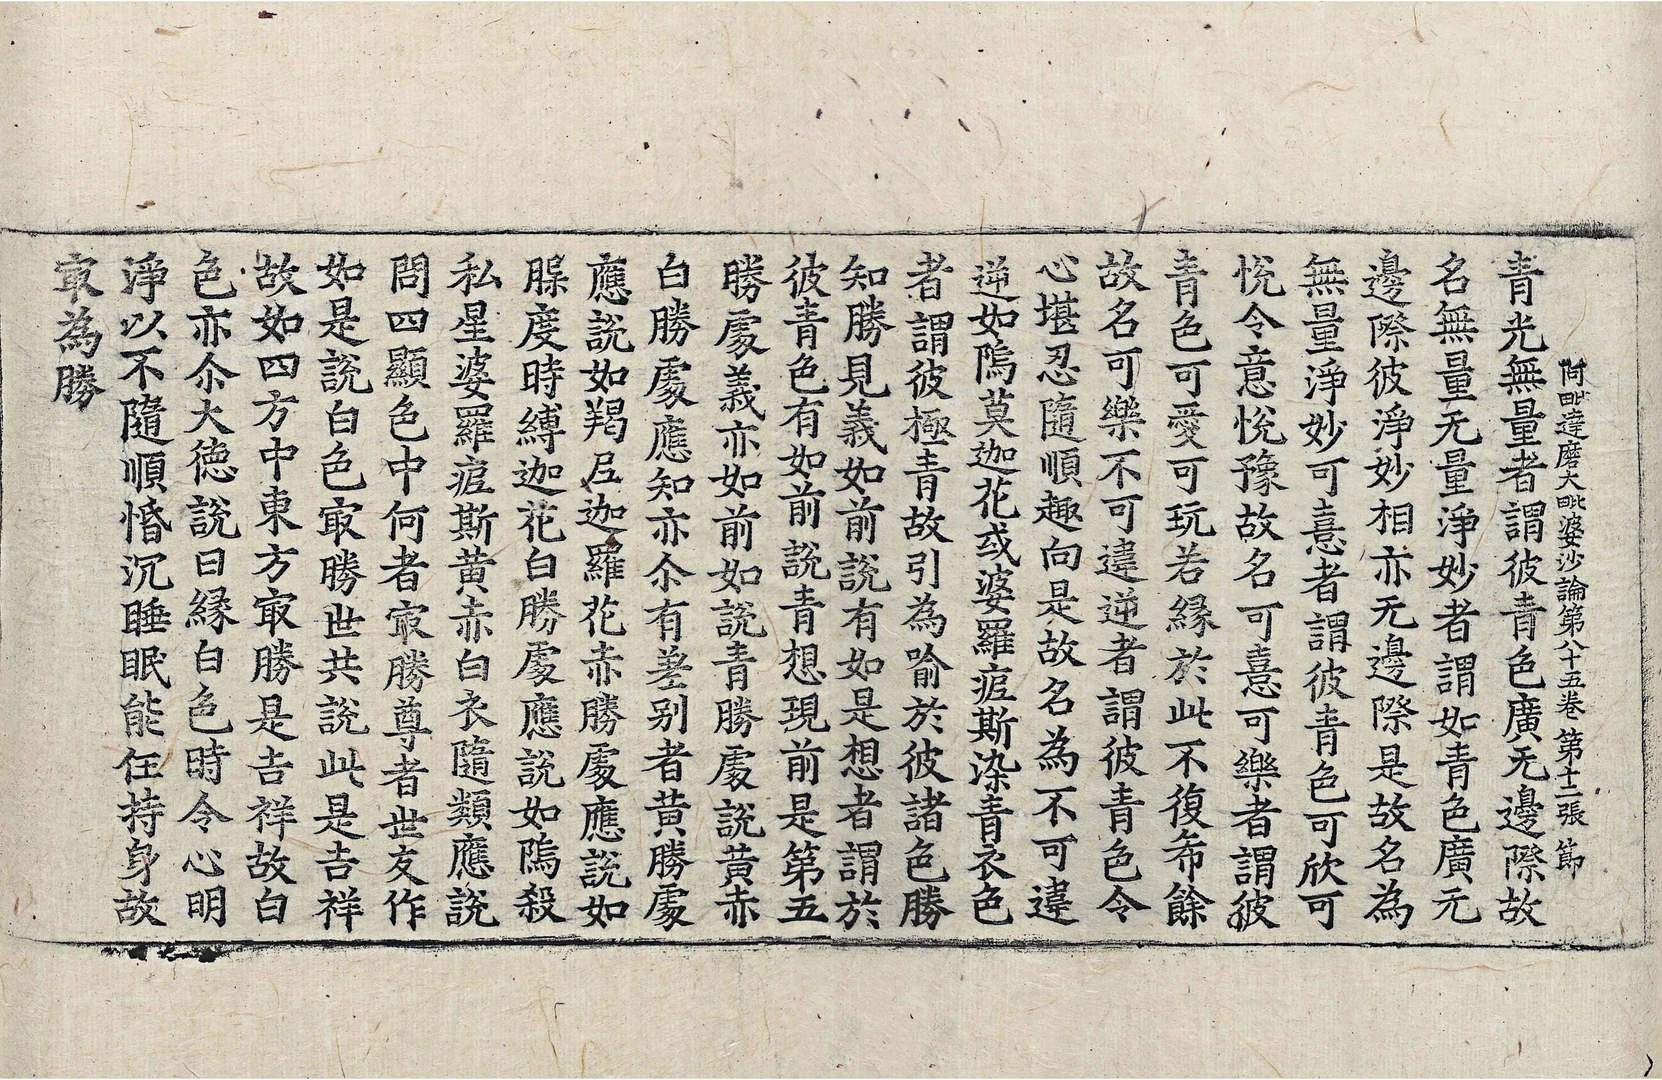 阿毗達磨大毗婆沙論第八十五卷 第十二張 節
青光無量者謂彼青色廣无邊際故
名無量无量淨妙者謂如青色廣无
邊際彼淨妙相亦无邊際是故名為
無量淨妙可憙者謂彼青色可欣可
悅令意悅豫故名可憙可樂者謂彼
青色可愛可玩若緣於此不復希餘
故名可樂不可違逆者謂彼青色令
心堪忍隨順趣向是故名為不可違
逆如鄔莫迦花或婆羅痆斯染青衣色
者謂彼極青故引為喻於彼諸色勝
知勝見義如前說有如是想者謂於
彼青色有如前說青想現前是第五
勝處義亦如前如說青勝處說黃赤
白勝處應知亦尒有差別者黃勝處
應說如羯尼迦羅花赤勝處應說如
䐗度時縛迦花白勝處應說如鄔殺
私星婆羅痆斯黃赤白衣隨類應說
問四顯色中何者㝡勝尊者世友作
如是說白色㝡勝世共說此是吉祥
故如四方中東方㝡勝是吉祥故白
色亦尒大德說曰緣白色時令心明
淨以不隨順惛沉睡眠能任持身故
㝡為勝